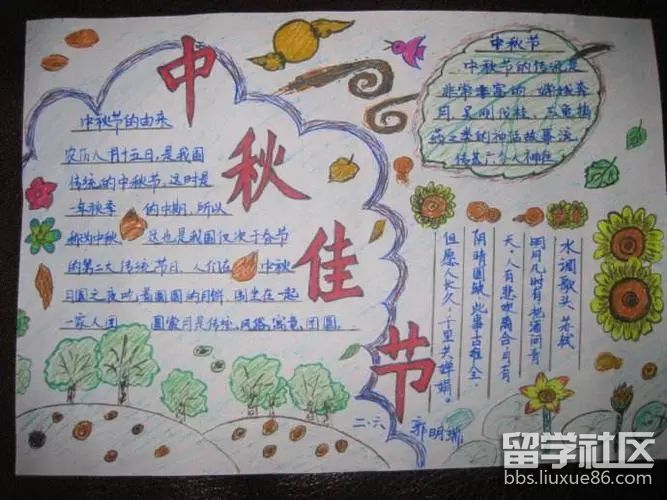 中秋佳节
中秋节的由来
农历八月十五日,是我国
传统的中秋节,这时是
一年秋季 的中期,所以
称为中秋 这也是我国仅次于春节
的第二大传统节日,人们在 中秋
月圆之夜吃着圆圆的月饼,围坐在一起
一家人团 圆赏月是传统,风俗,寓意,团圆.
中秋节
中秋节的传说是
非常丰富的,嫦娥奔
月,吴刚伐桂,玉兔捣
药之类的神话故事流
传甚广
水调歌头 苏轼
明月几时有把酒问青
天,人有悲欢离合月有
阴晴圆缺,此事古难全.
但愿人长久,千里共婵娟.
二.六 郭明瑞
留学社区
bbs.liuxue86.com